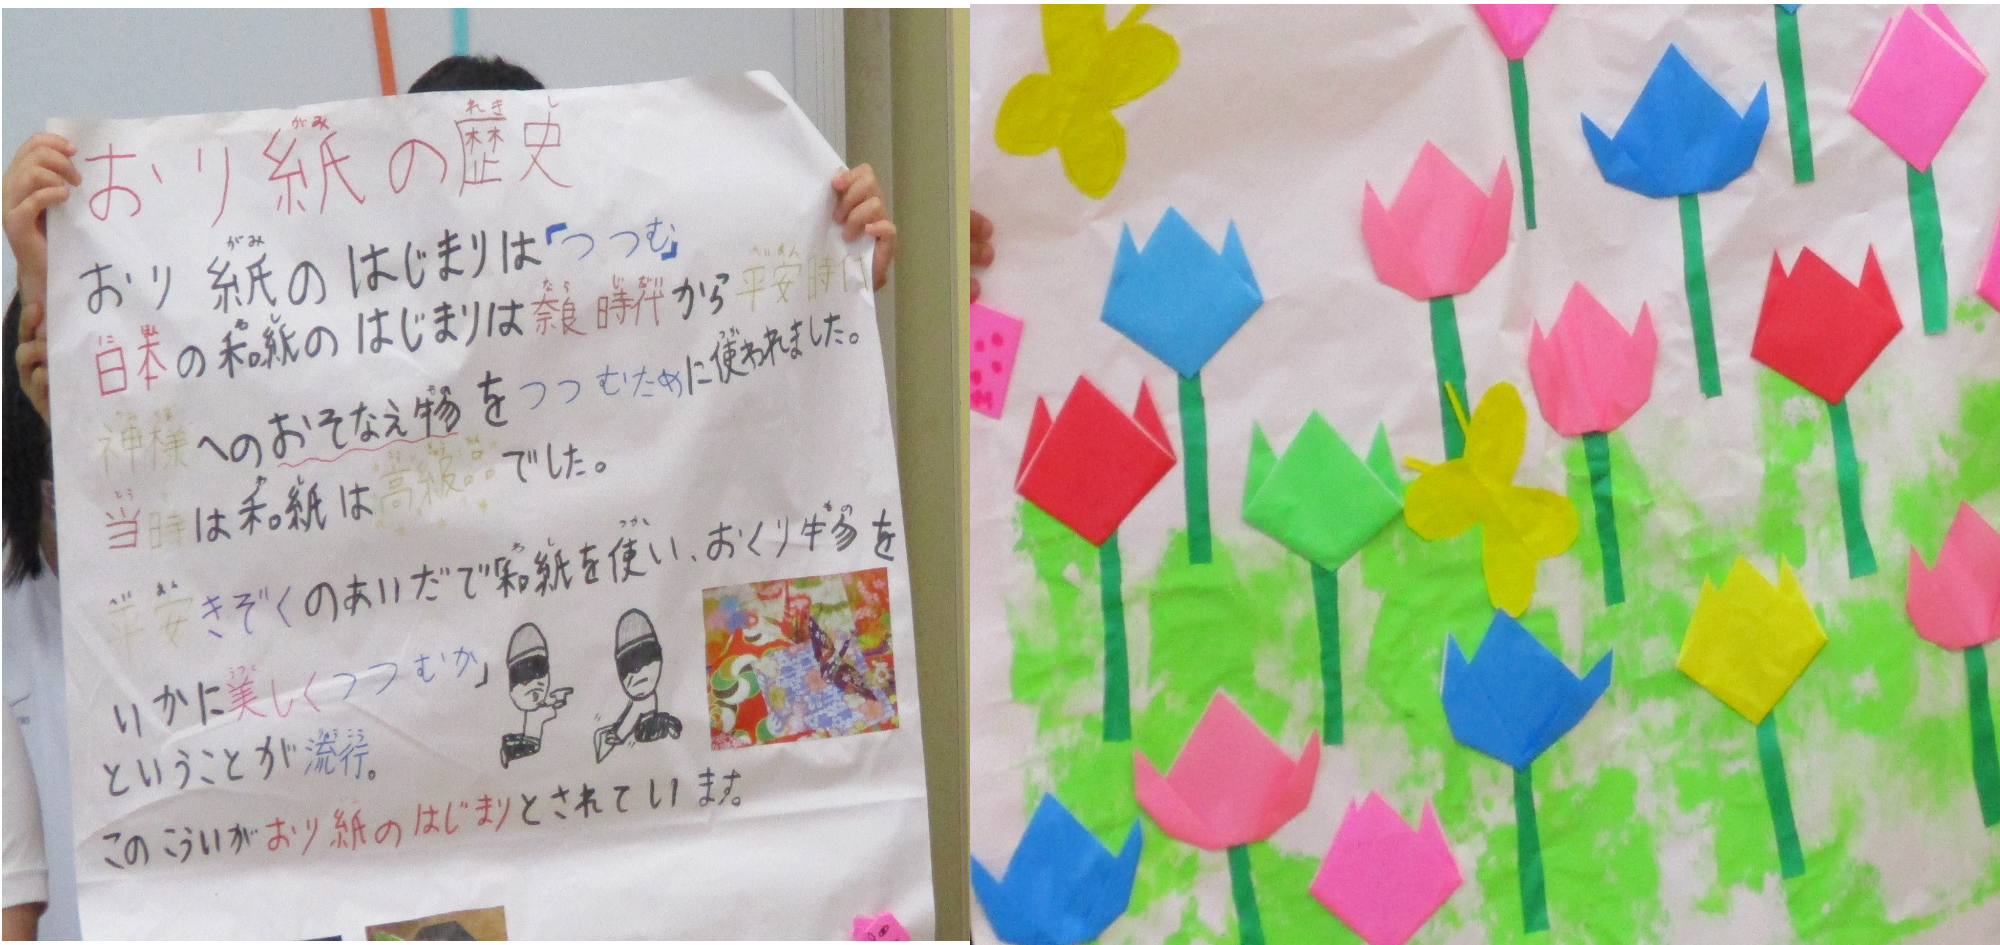 おり紙の歴史
おり紙のはじまりは「つつむ」
日本の和紙のはじまりは奈良時代から平安時代
神様へのおそなえ物をつつむために使われました。
当時は和紙は高級品でした。
平安きぞくのあいだで和紙を使い、おくり物を
いかに美しくつつむか」
ということが流行。
このこういがおり紙のはじまりとされています。